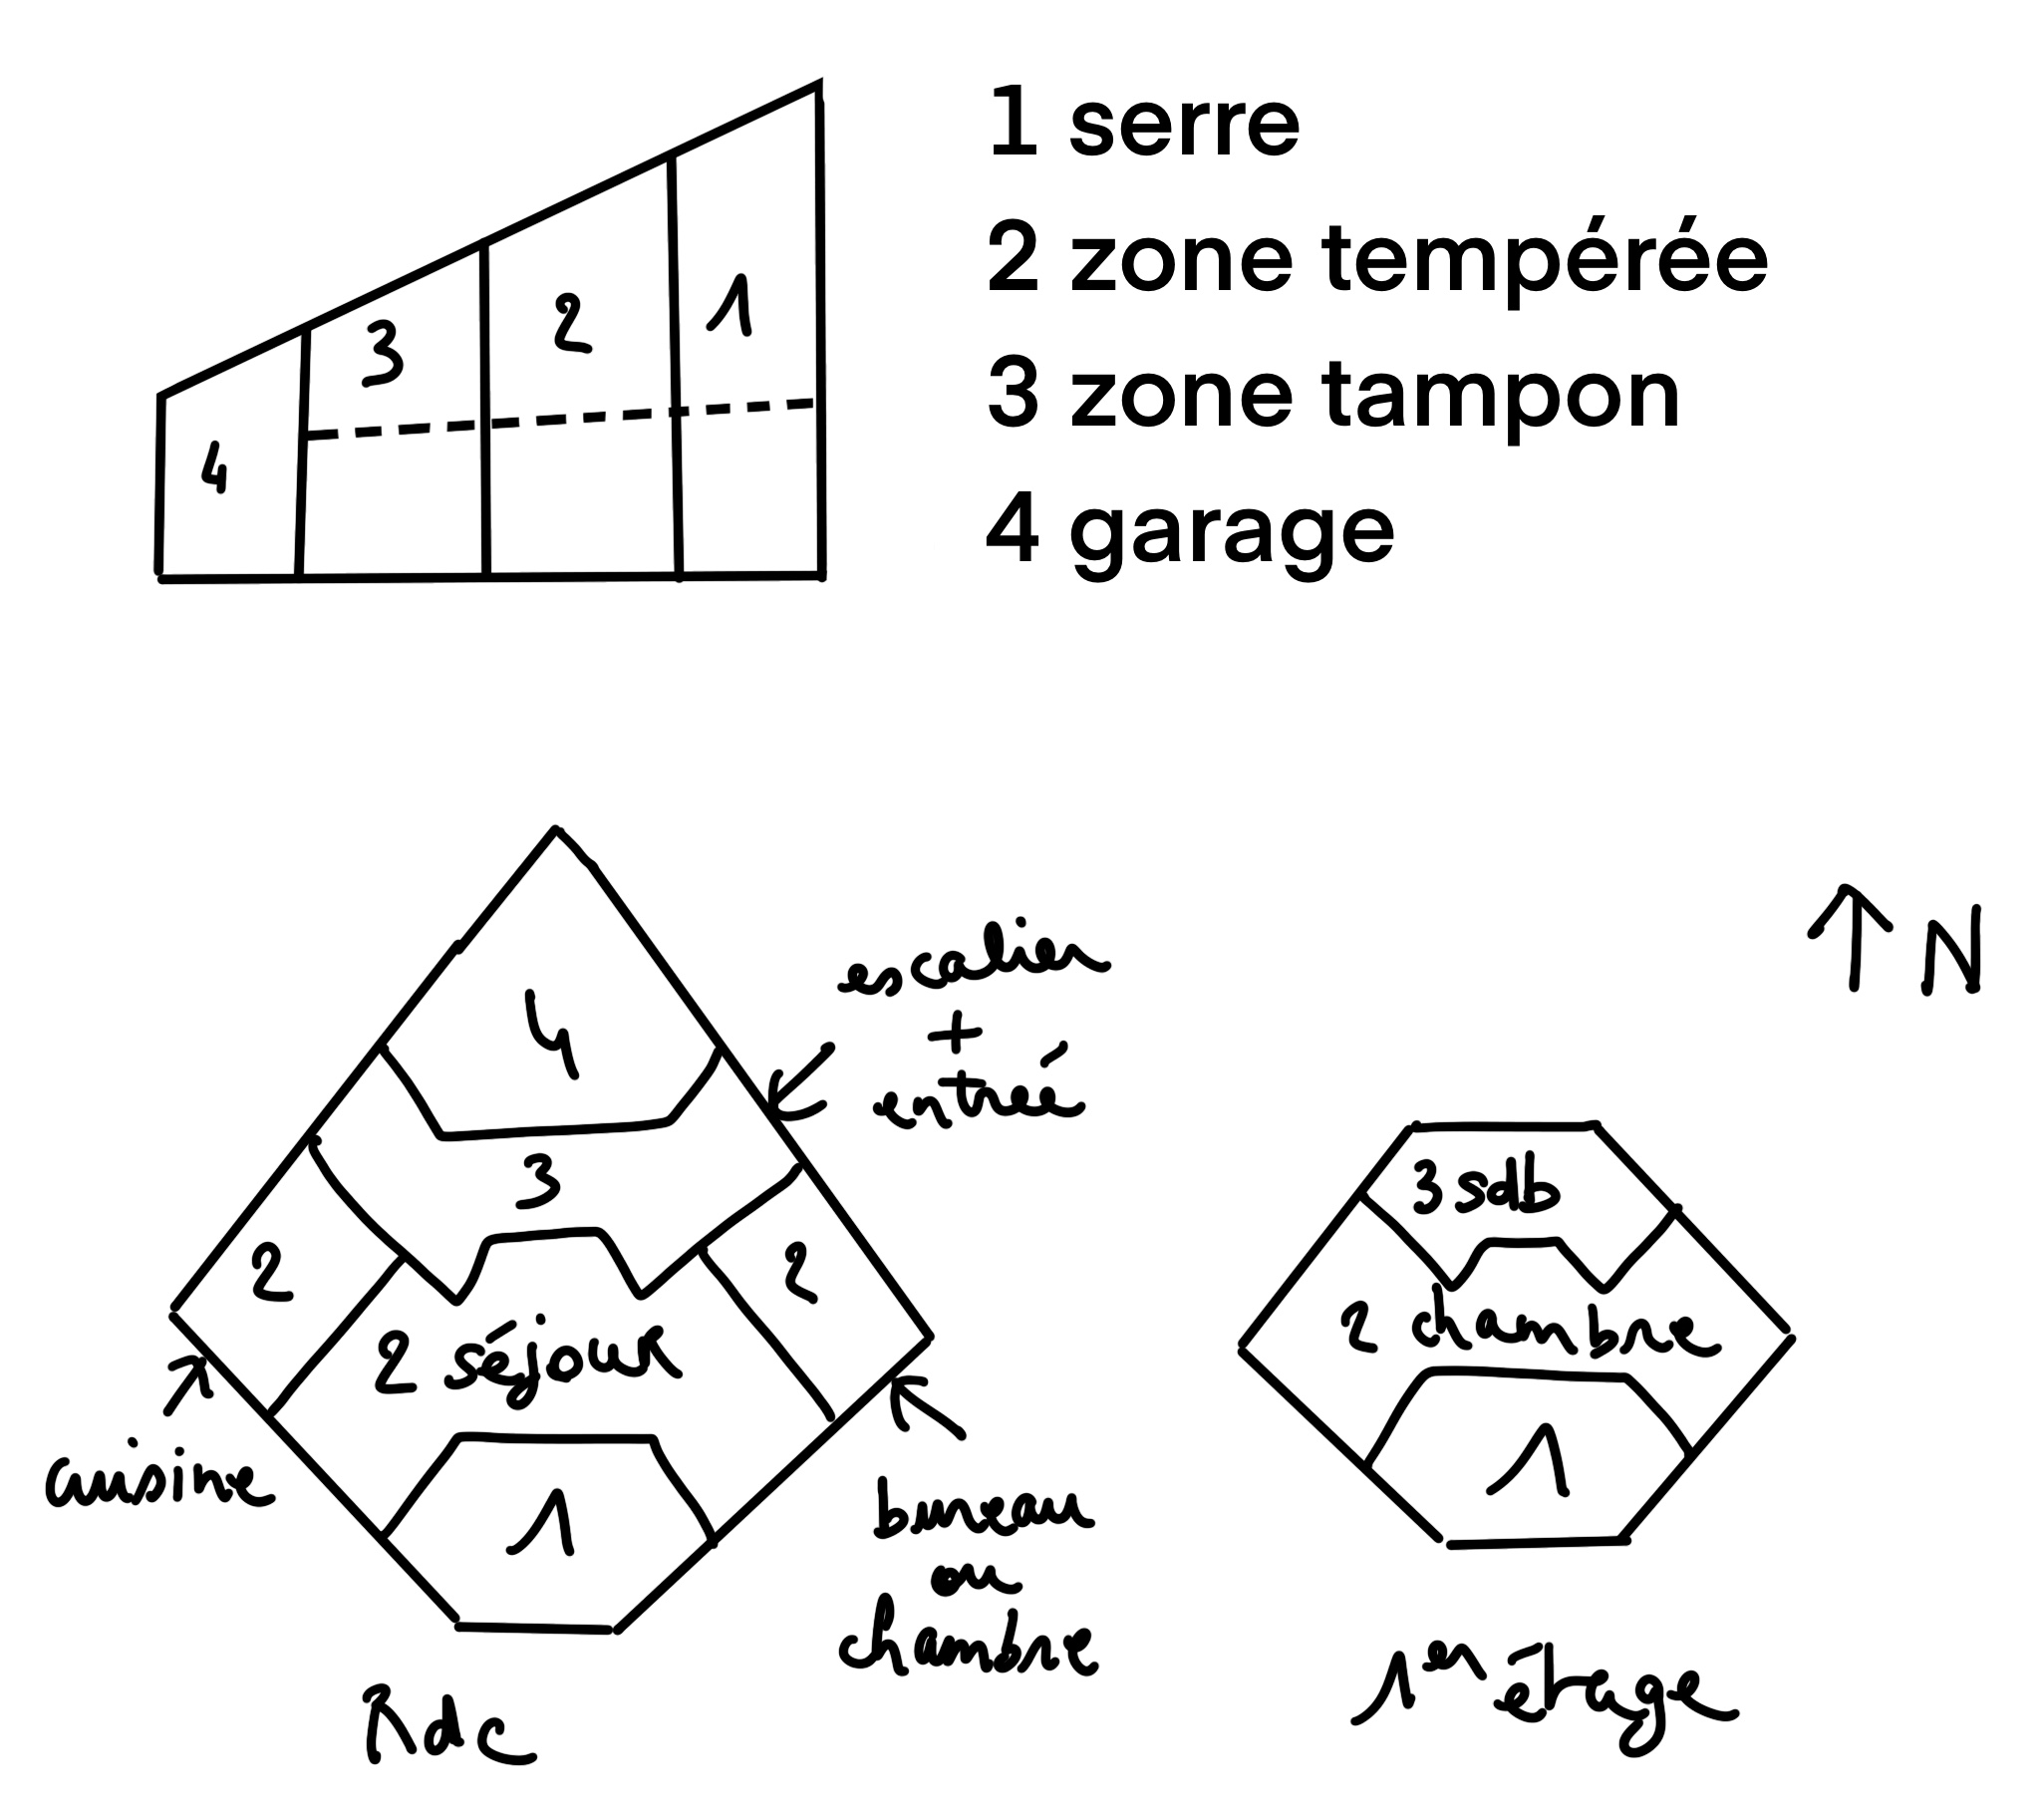 1 serre
2 zone tempérée
3 zone tampon
4 garage
4
3
2
1
escalier
+
entrée
N
4
3
2
2
2 séjour
1
cuisine
bureau
ou
chambre
Rdc
3 sdb
2 chambre
1
1er étage